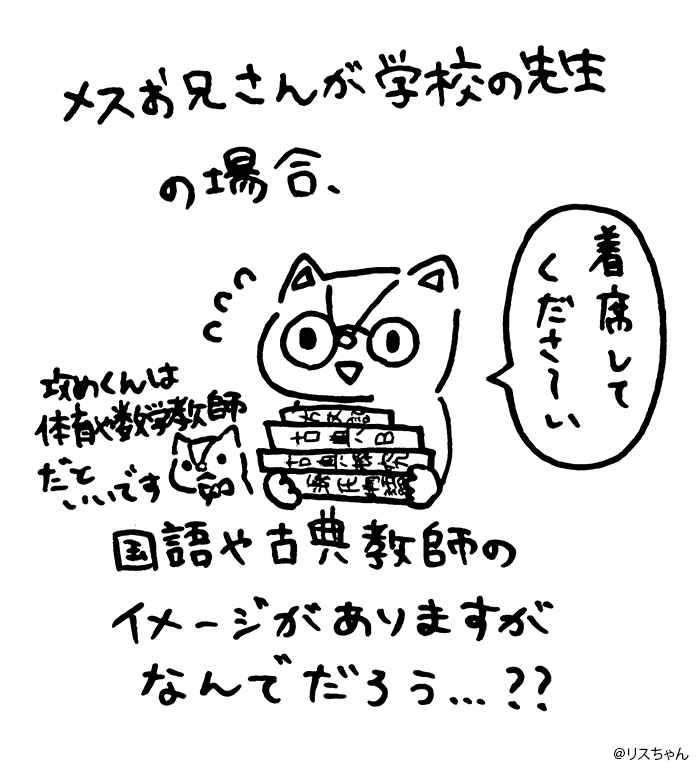 メスお兄さんが学校の先生
の場合、
着席して
くださ〜い
攻めくんは
体育や数学教師
だと
いいです
古典B
国語や古典教師の
イメージがありますが
なんでだろう…??
@リスちゃん